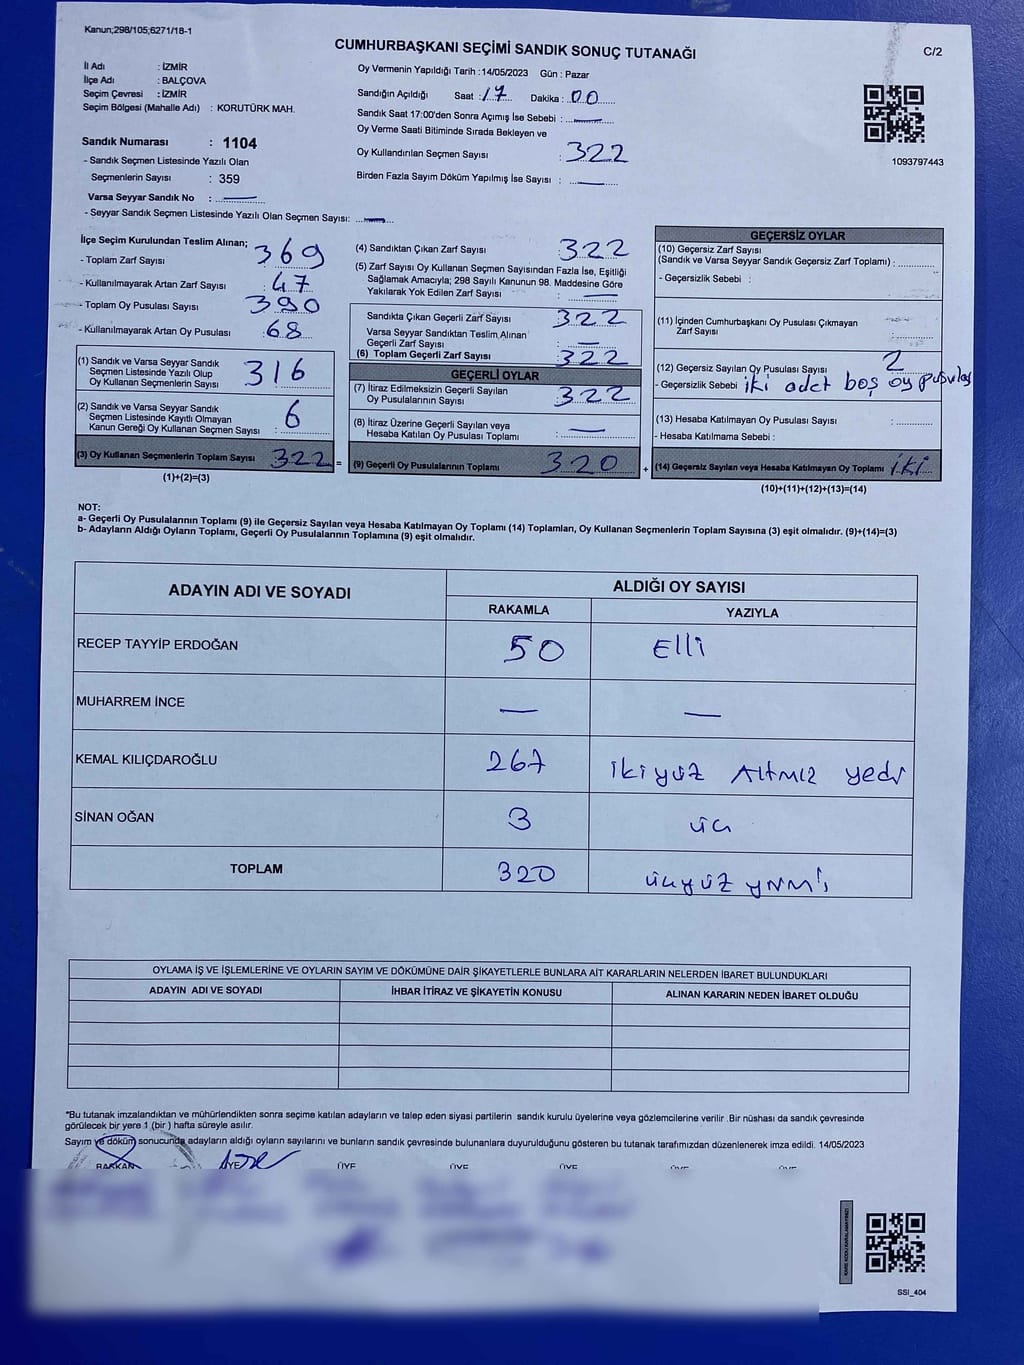 Kanun;298/105;6271/18-1
CUMHURBAŞKANI SEÇİMİ SANDIK SONUÇ TUTANAĞI
C/2
İl Adı : İZMİR
İlçe Adı : BALÇOVA
Seçim Çevresi : İZMİR
Seçim Bölgesi (Mahalle Adı) : KORUTÜRK MAH.
Oy Vermenin Yapıldığı Tarih :14/05/2023 Gün : Pazar
Sandığın Açıldığı Saat : 17 Dakika : 00
Sandık Saat 17:00'den Sonra Açımış İse Sebebi : —
Oy Verme Saati Bitiminde Sırada Bekleyen ve
Oy Kullandırılan Seçmen Sayısı : 322
Birden Fazla Sayım Döküm Yapılmış İse Sayısı : —
1093797443
Sandık Numarası : 1104
- Sandık Seçmen Listesinde Yazılı Olan
Seçmenlerin Sayısı : 359
Varsa Seyyar Sandık No : —
- Seyyar Sandık Seçmen Listesinde Yazılı Olan Seçmen Sayısı: —
İlçe Seçim Kurulundan Teslim Alınan;
- Toplam Zarf Sayısı : 369
- Kullanılmayarak Artan Zarf Sayısı : 47
- Toplam Oy Pusulası Sayısı : 390
- Kullanılmayarak Artan Oy Pusulası : 68
(1) Sandık ve Varsa Seyyar Sandık
Seçmen Listesinde Yazılı Olup
Oy Kullanan Seçmenlerin Sayısı : 316
(2) Sandık ve Varsa Seyyar Sandık
Seçmen Listesinde Kayıtlı Olmayan
Kanun Gereği Oy Kullanan Seçmen Sayısı : 6
(3) Oy Kullanan Seçmenlerin Toplam Sayısı 322 =
(1)+(2)=(3)
(4) Sandıktan Çıkan Zarf Sayısı : 322
(5) Zarf Sayısı Oy Kullanan Seçmen Sayısından Fazla İse, Eşitliği
Sağlamak Amacıyla; 298 Sayılı Kanunun 98. Maddesine Göre
Yakılarak Yok Edilen Zarf Sayısı : —
Sandıkta Çıkan Geçerli Zarf Sayısı 322
Varsa Seyyar Sandıktan Teslim Alınan
Geçerli Zarf Sayısı : —
(6) Toplam Geçerli Zarf Sayısı 322
GEÇERLİ OYLAR
(7) İtiraz Edilmeksizin Geçerli Sayılan
Oy Pusulalarının Sayısı : 322
(8) İtiraz Üzerine Geçerli Sayılan veya
Hesaba Katılan Oy Pusulası Toplamı : —
(9) Geçerli Oy Pusulalarının Toplamı 320 +
GEÇERSİZ OYLAR
(10) Geçersiz Zarf Sayısı
(Sandık ve Varsa Seyyar Sandık Geçersiz Zarf Toplamı) :
- Geçersizlik Sebebi :
(11) İçinden Cumhurbaşkanı Oy Pusulası Çıkmayan
Zarf Sayısı
(12) Geçersiz Sayılan Oy Pusulası Sayısı 2
- Geçersizlik Sebebi iki adet boş oy pusulası
(13) Hesaba Katılmayan Oy Pusulası Sayısı :
- Hesaba Katılmama Sebebi :
(14) Geçersiz Sayılan veya Hesaba Katılmayan Oy Toplamı iki
(10)+(11)+(12)+(13)=(14)
NOT:
a- Geçerli Oy Pusulalarının Toplamı (9) ile Geçersiz Sayılan veya Hesaba Katılmayan Oy Toplamı (14) Toplamları, Oy Kullanan Seçmenlerin Toplam Sayısına (3) eşit olmalıdır. (9)+(14)=(3)
b- Adayların Aldığı Oyların Toplamı, Geçerli Oy Pusulalarının Toplamına (9) eşit olmalıdır.
ADAYIN ADI VE SOYADI ALDIĞI OY SAYISI
RAKAMLA YAZIYLA
RECEP TAYYİP ERDOĞAN 50 Elli
MUHARREM İNCE — —
KEMAL KILIÇDAROĞLU 267 ikiyüz Altmız yedi
SİNAN OĞAN 3 üç
TOPLAM 320 üçyüz yirmi
OYLAMA İŞ VE İŞLEMLERİNE VE OYLARIN SAYIM VE DÖKÜMÜNE DAİR ŞİKAYETLERLE BUNLARA AİT KARARLARIN NELERDEN İBARET BULUNDUKLARI
ADAYIN ADI VE SOYADI İHBAR İTİRAZ VE ŞİKAYETİN KONUSU ALINAN KARARIN NEDEN İBARET OLDUĞU
"Bu tutanak imzalandıktan ve mühürlendikten sonra seçime katılan adayların ve talep eden siyasi partilerin sandık kurulu üyelerine veya gözlemcilerine verilir .Bir nüshası da sandık çevresinde
görülecek bir yere 1 (bir ) hafta süreyle asılır.
Sayım ve döküm sonucunda adayların aldığı oyların sayılarını ve bunların sandık çevresinde bulunanlara duyurulduğunu gösteren bu tutanak tarafımızdan düzenlenerek imza edildi. 14/05/2023
BAŞKAN ÜYE ÜYE ÜYE ÜYE ÜYE ÜYE
SSI_404